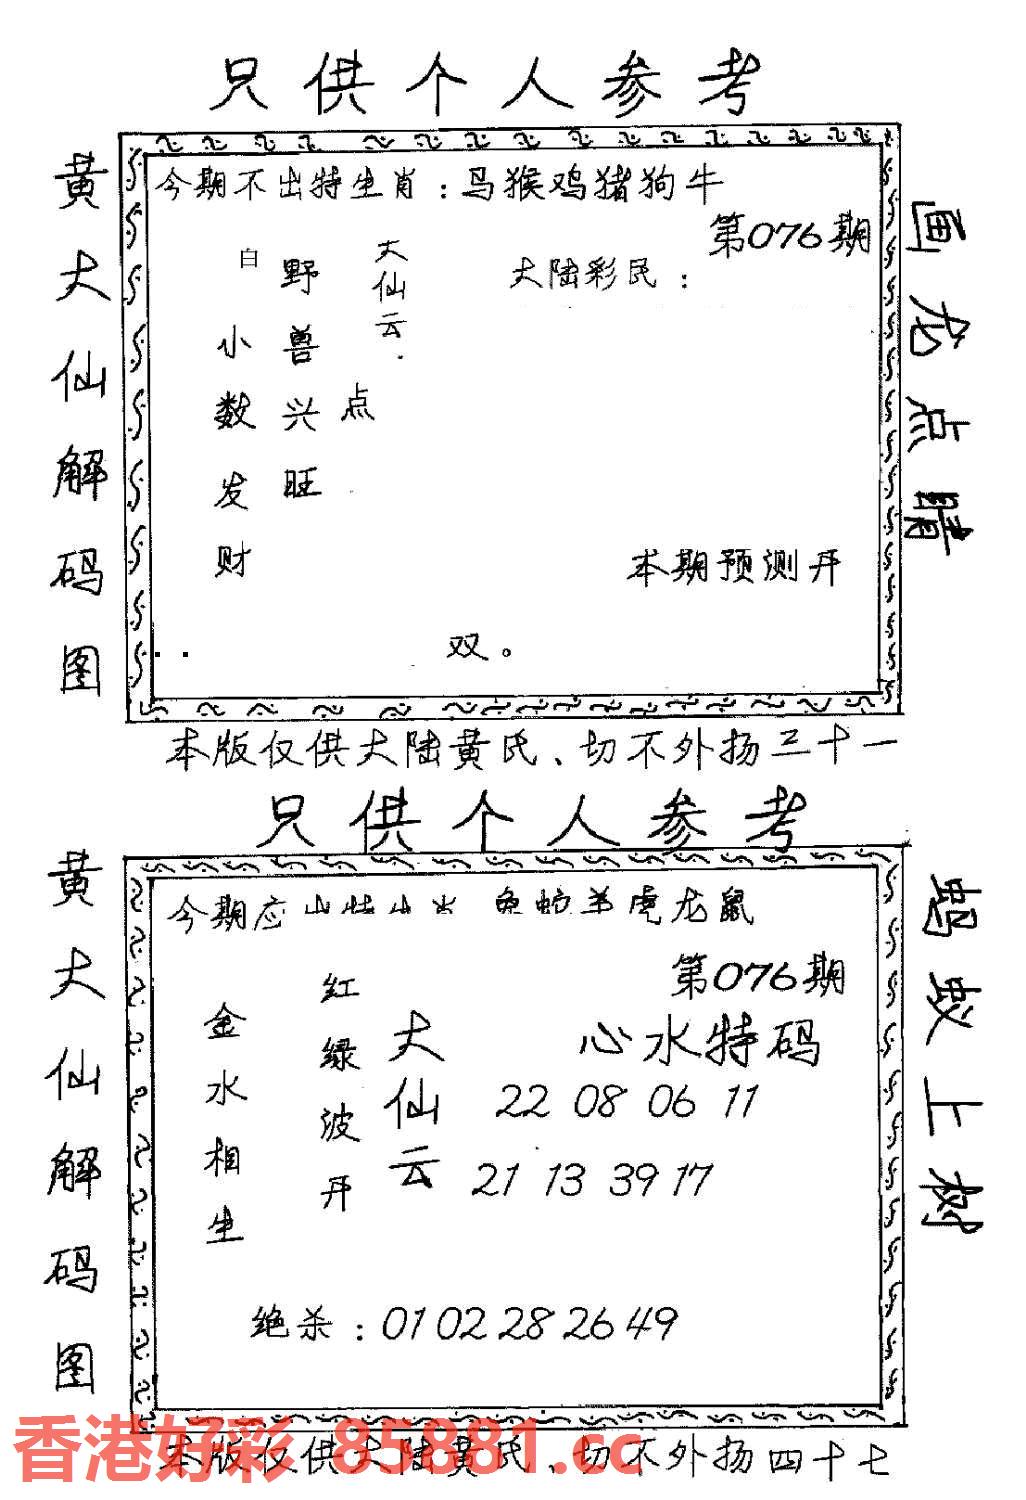 只供个人参考
黄大仙解码图
今期不出特生肖：马猴鸡猪狗牛
第076期
大陆彩民：
大仙云.
点
野兽兴旺
白
小数发财
本期预测开
双。
画龙点睛
本版仅供大陆黄氏、切不外扬三十一
只供个人参考
黄大仙解码图
今期应出特生肖 兔蛇羊虎龙鼠
第076期
心水特码
大仙云
22 08 06 11
21 13 39 17
红绿波开
金水相生
绝杀：01 02 28 26 49
蚂蚁上树
本版仅供大陆黄氏、切不外扬四十七
香港好彩 85881.cc